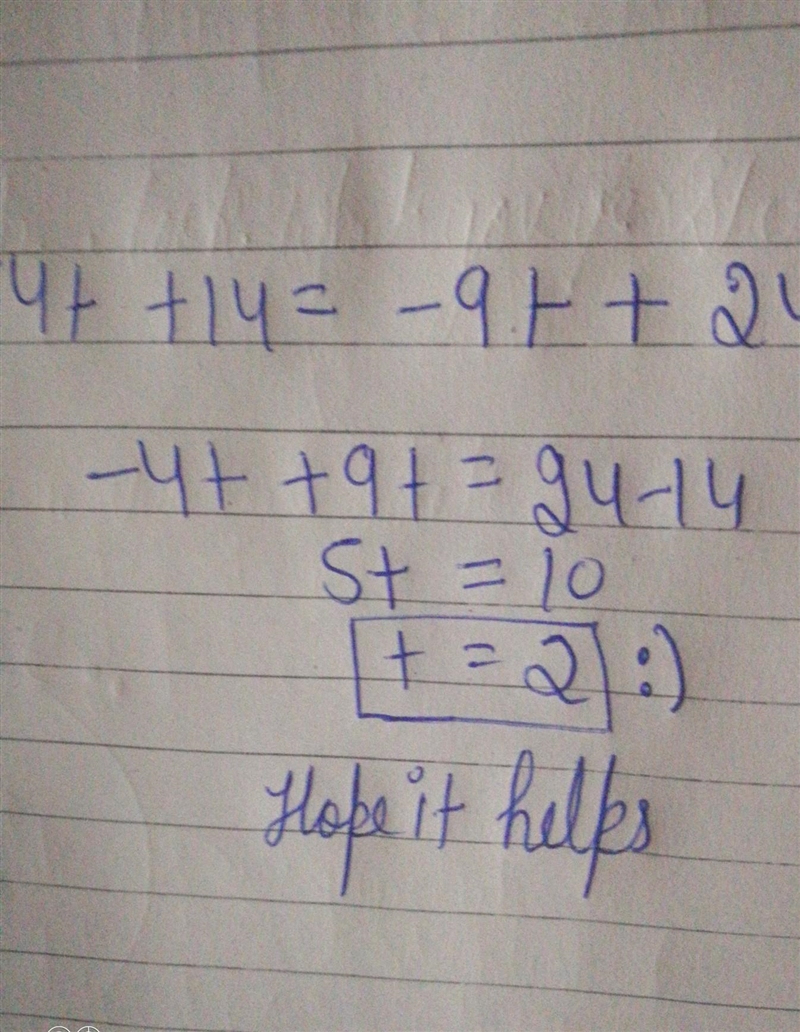 4t + 14 = -9t + 24
-4t + 9t = 24-14
5t = 10
t = 2 :)
Hope it helps